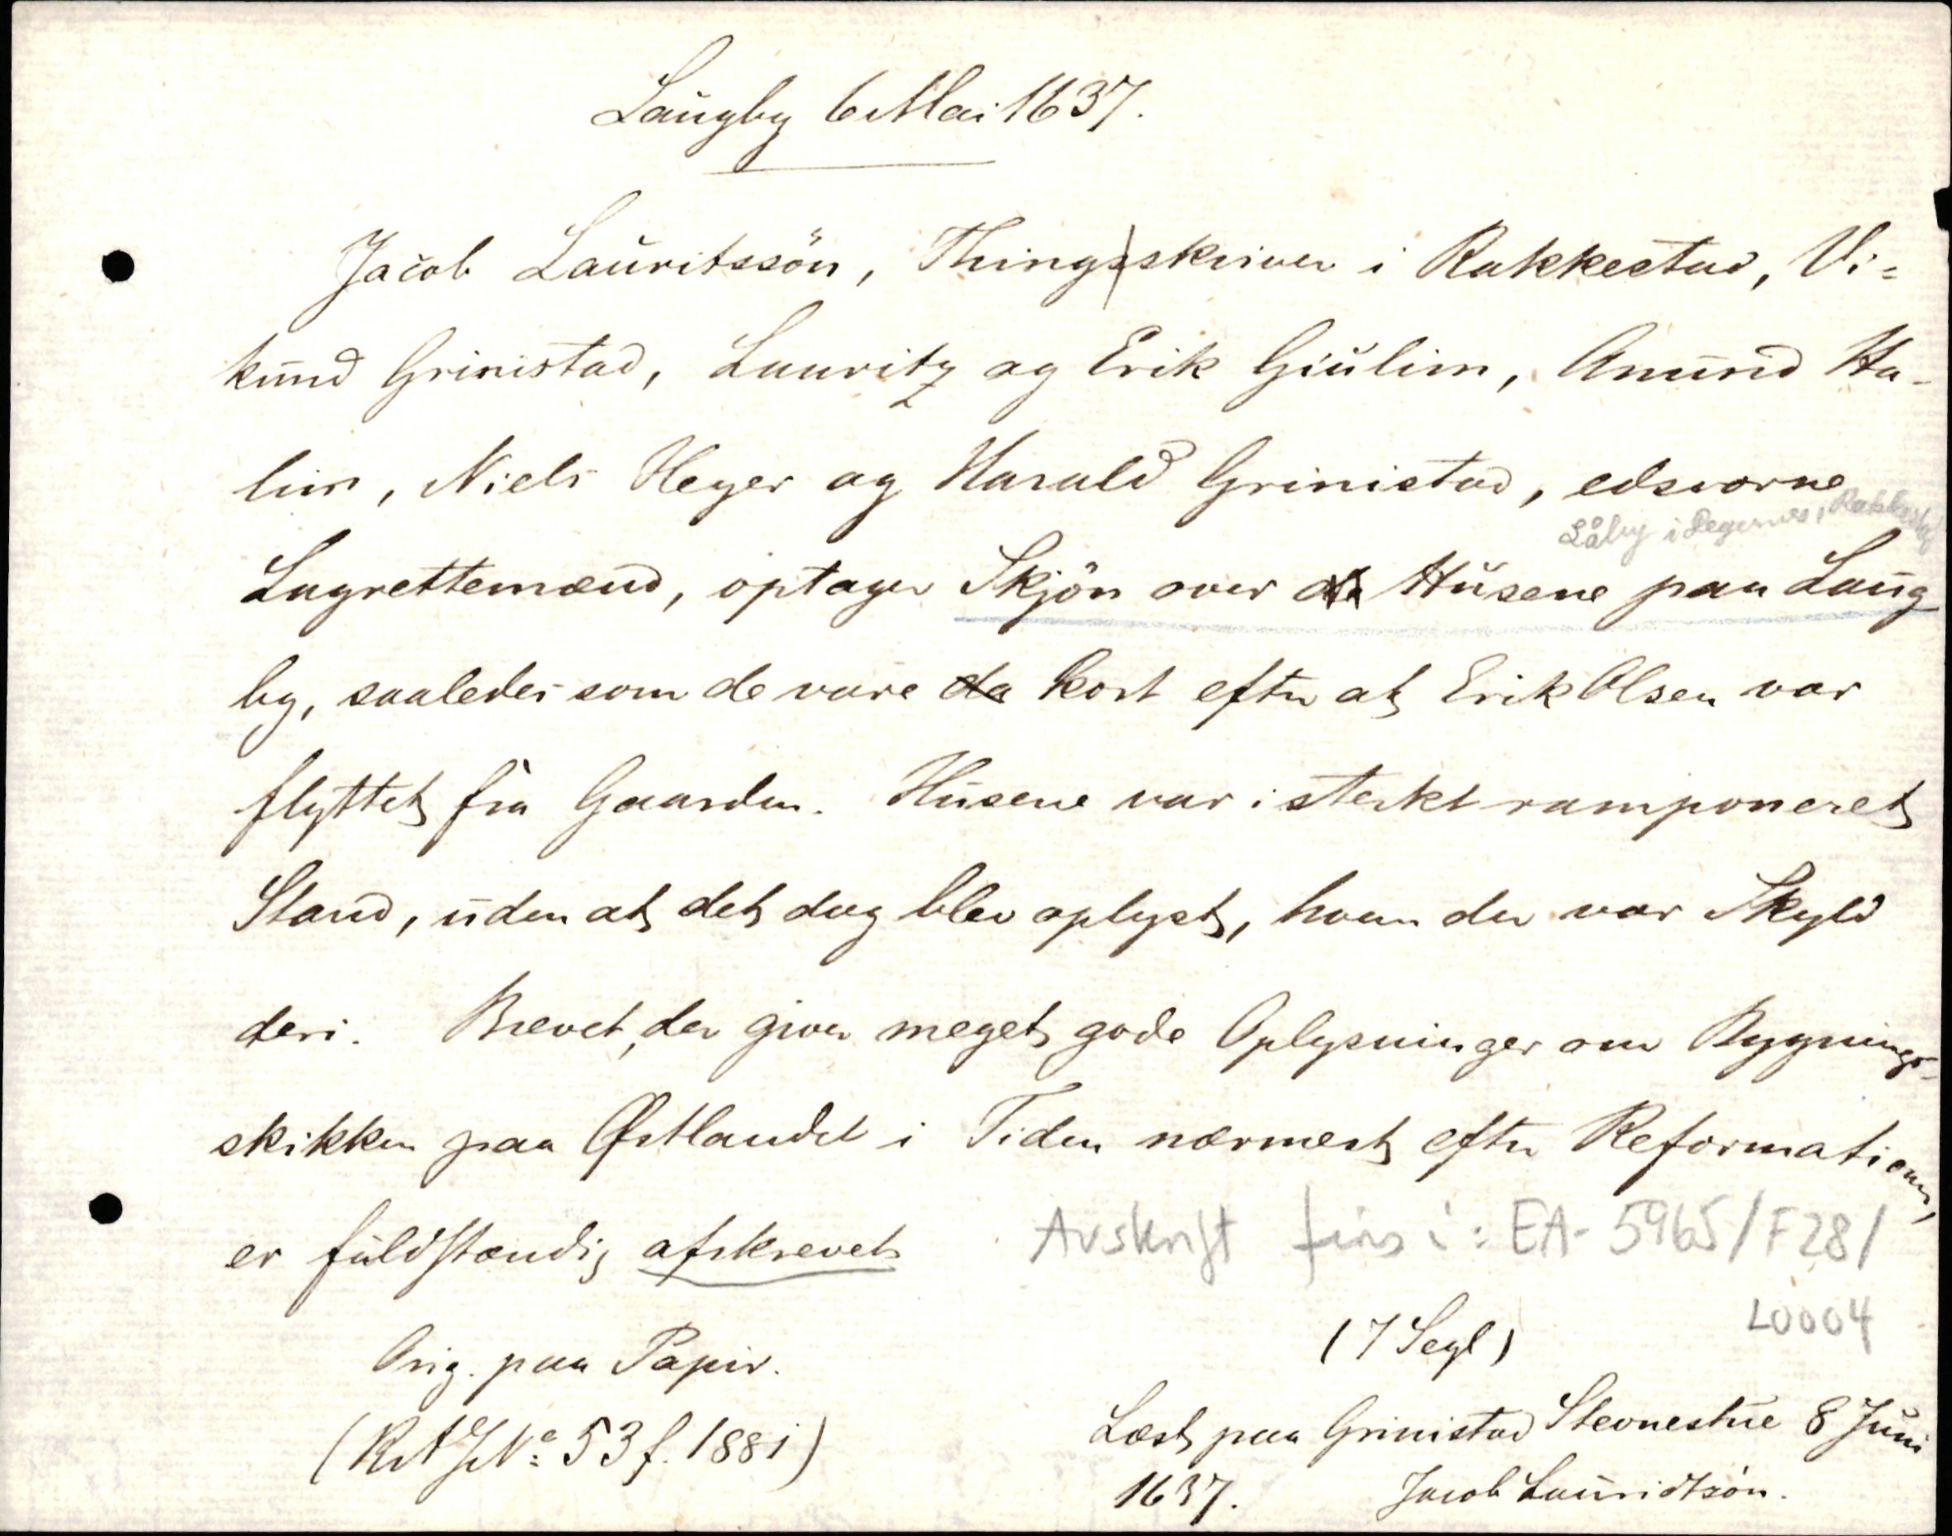 Laugby 6 Mai 1637.
Jacob Lauritssön, Thingsskriver i Rakkestad, Vi=
kund Grinistad, Lauritz og Erik Giulim, Amund Ha-
lim, Niels Heyer og Harald Grinistad, edsvorne
Låby i Degernes, Rakkestad
Lagrettemænd, optager Skjön over de Husene paa Laug
by, saaledes som de vare da kort efter at Erik Olsen var
flyttet fra Gaarden. Husene var i sterkt ramponeret
Stand, uden at det dog blev oplyst, hvem der var Skyld
deri. Brevet, der giver meget gode Oplysninger om Bygnings-
skikken paa Østlandet i Tiden nærmest efter Reformationen,
er fuldstændig afskrevet
Avskrift fins i: EA-5965/F28/
L0004
Orig. paa Papir.
(7 Segl)
(RA JNo: 53 f. 1881)
Læst paa Grinistad Stevnestue 8 Juni
1637. Jacob Lauridtsön.